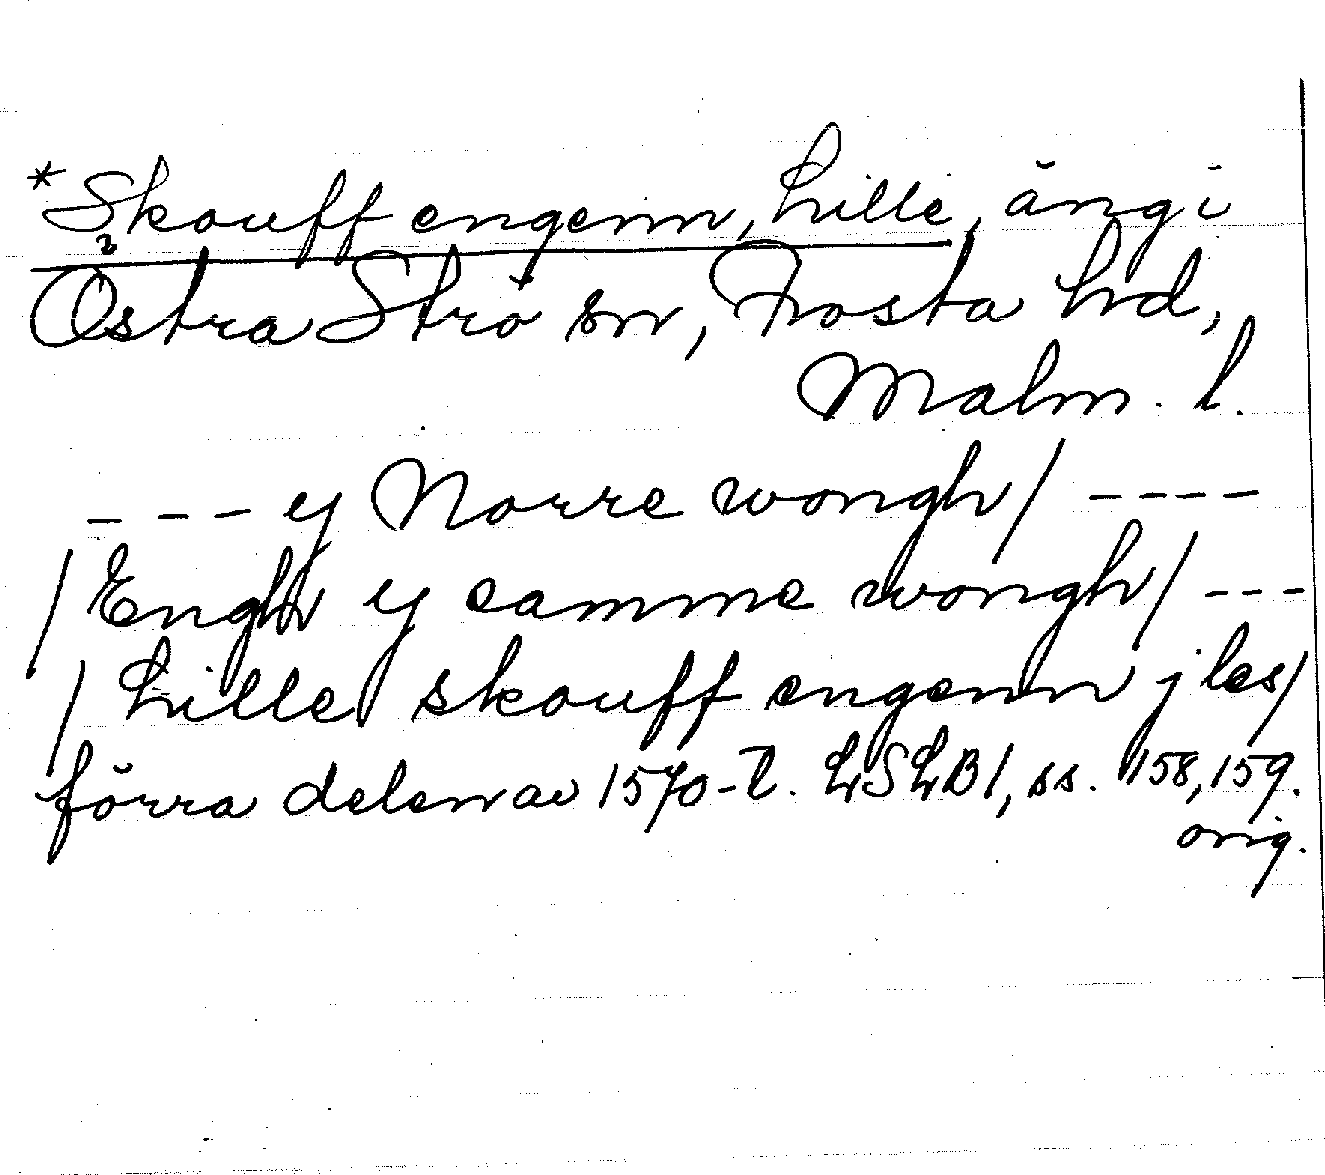 *Skouff engenn, Lille, äng i
Östra Strö sn, Frosta hd,
Malm. l.
--- y Norre wongh/ ----
/Engh y samme wongh/ ---
/Lille skouff engenn j les/
förra delen av 1570-t. LSLB1, ss. 158, 159.
orig.